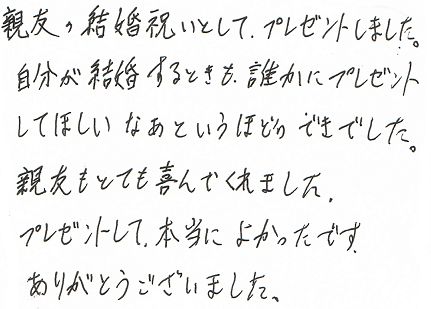 親友の結婚祝いとして、プレゼントしました。
自分が結婚するときも、誰かにプレゼント
してほしいなあというほどの できでした。
親友もとても喜んでくれました。
プレゼントして、本当に よかったです。
ありがとうございました。